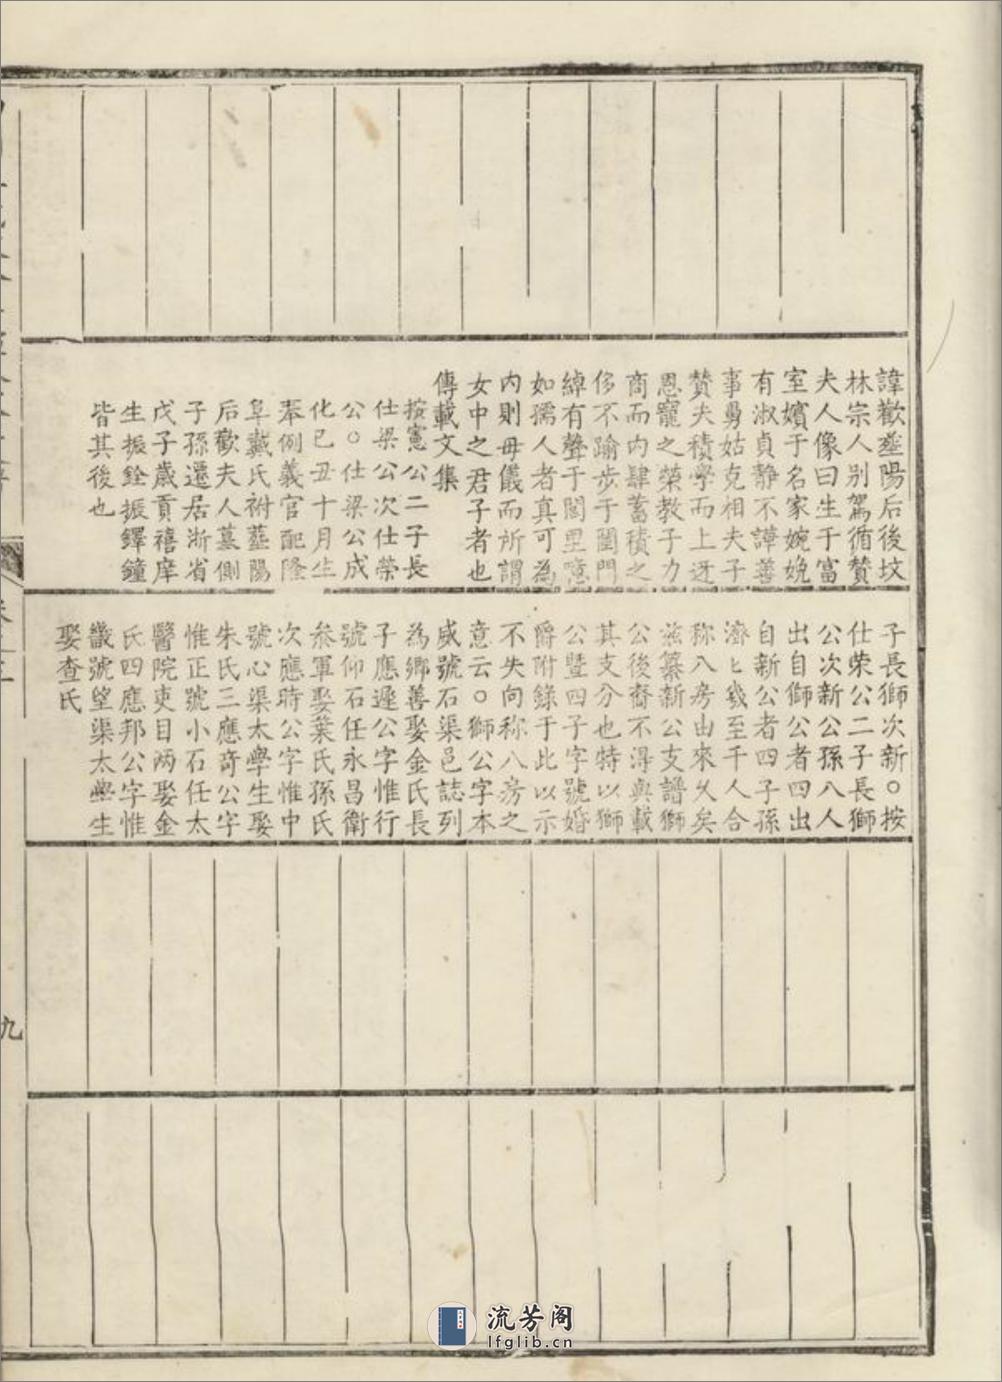 諱歡塟陽后後坟
林宗人别駕循贊
夫人像曰生于富
室嬪于名家婉娩
有淑貞静不譁善
事舅姑克相夫子
贊夫積學而上迓
恩寵之榮教子力
商而内肆蓄積之
侈不踰步于閨門
綽有聲于閭里噫
如孺人者真可為
内則毋儀而所謂
女中之君子者也
傳載文集
按憲公二子長
仕梁公次仕榮
公○仕梁公成
化已丑十月生
奉例義官配隆
阜戴氏祔塟陽
后歡夫人墓側
子孫遷居浙省
戊子歲貢禧庠
生振銓振鐸鐘
皆其後也
子長獅次新○按
仕荣公二子長獅
公次新公孫八人
出自獅公者四出
自新公者四子孫
濟匕幾至千人合
称八房由來久矣
兹纂新公支譜獅
公後裔不淂與載
其支分也特以獅
公暨四子字號婚
爵附錄于此以示
不失向称八房之
意云○獅公字本
威號石渠邑誌列
為鄉善娶金氏長
子應遲公字惟行
號仰石任永昌衛
叅軍娶葉氏孫氏
次應時公字惟中
號心渠太學生娶
朱氏三應奇公字
惟正號小石任太
醫院吏目两娶金
氏四應邦公字惟
畿號望渠太學生
娶查氏
九
流芳阁
lfglib.cn